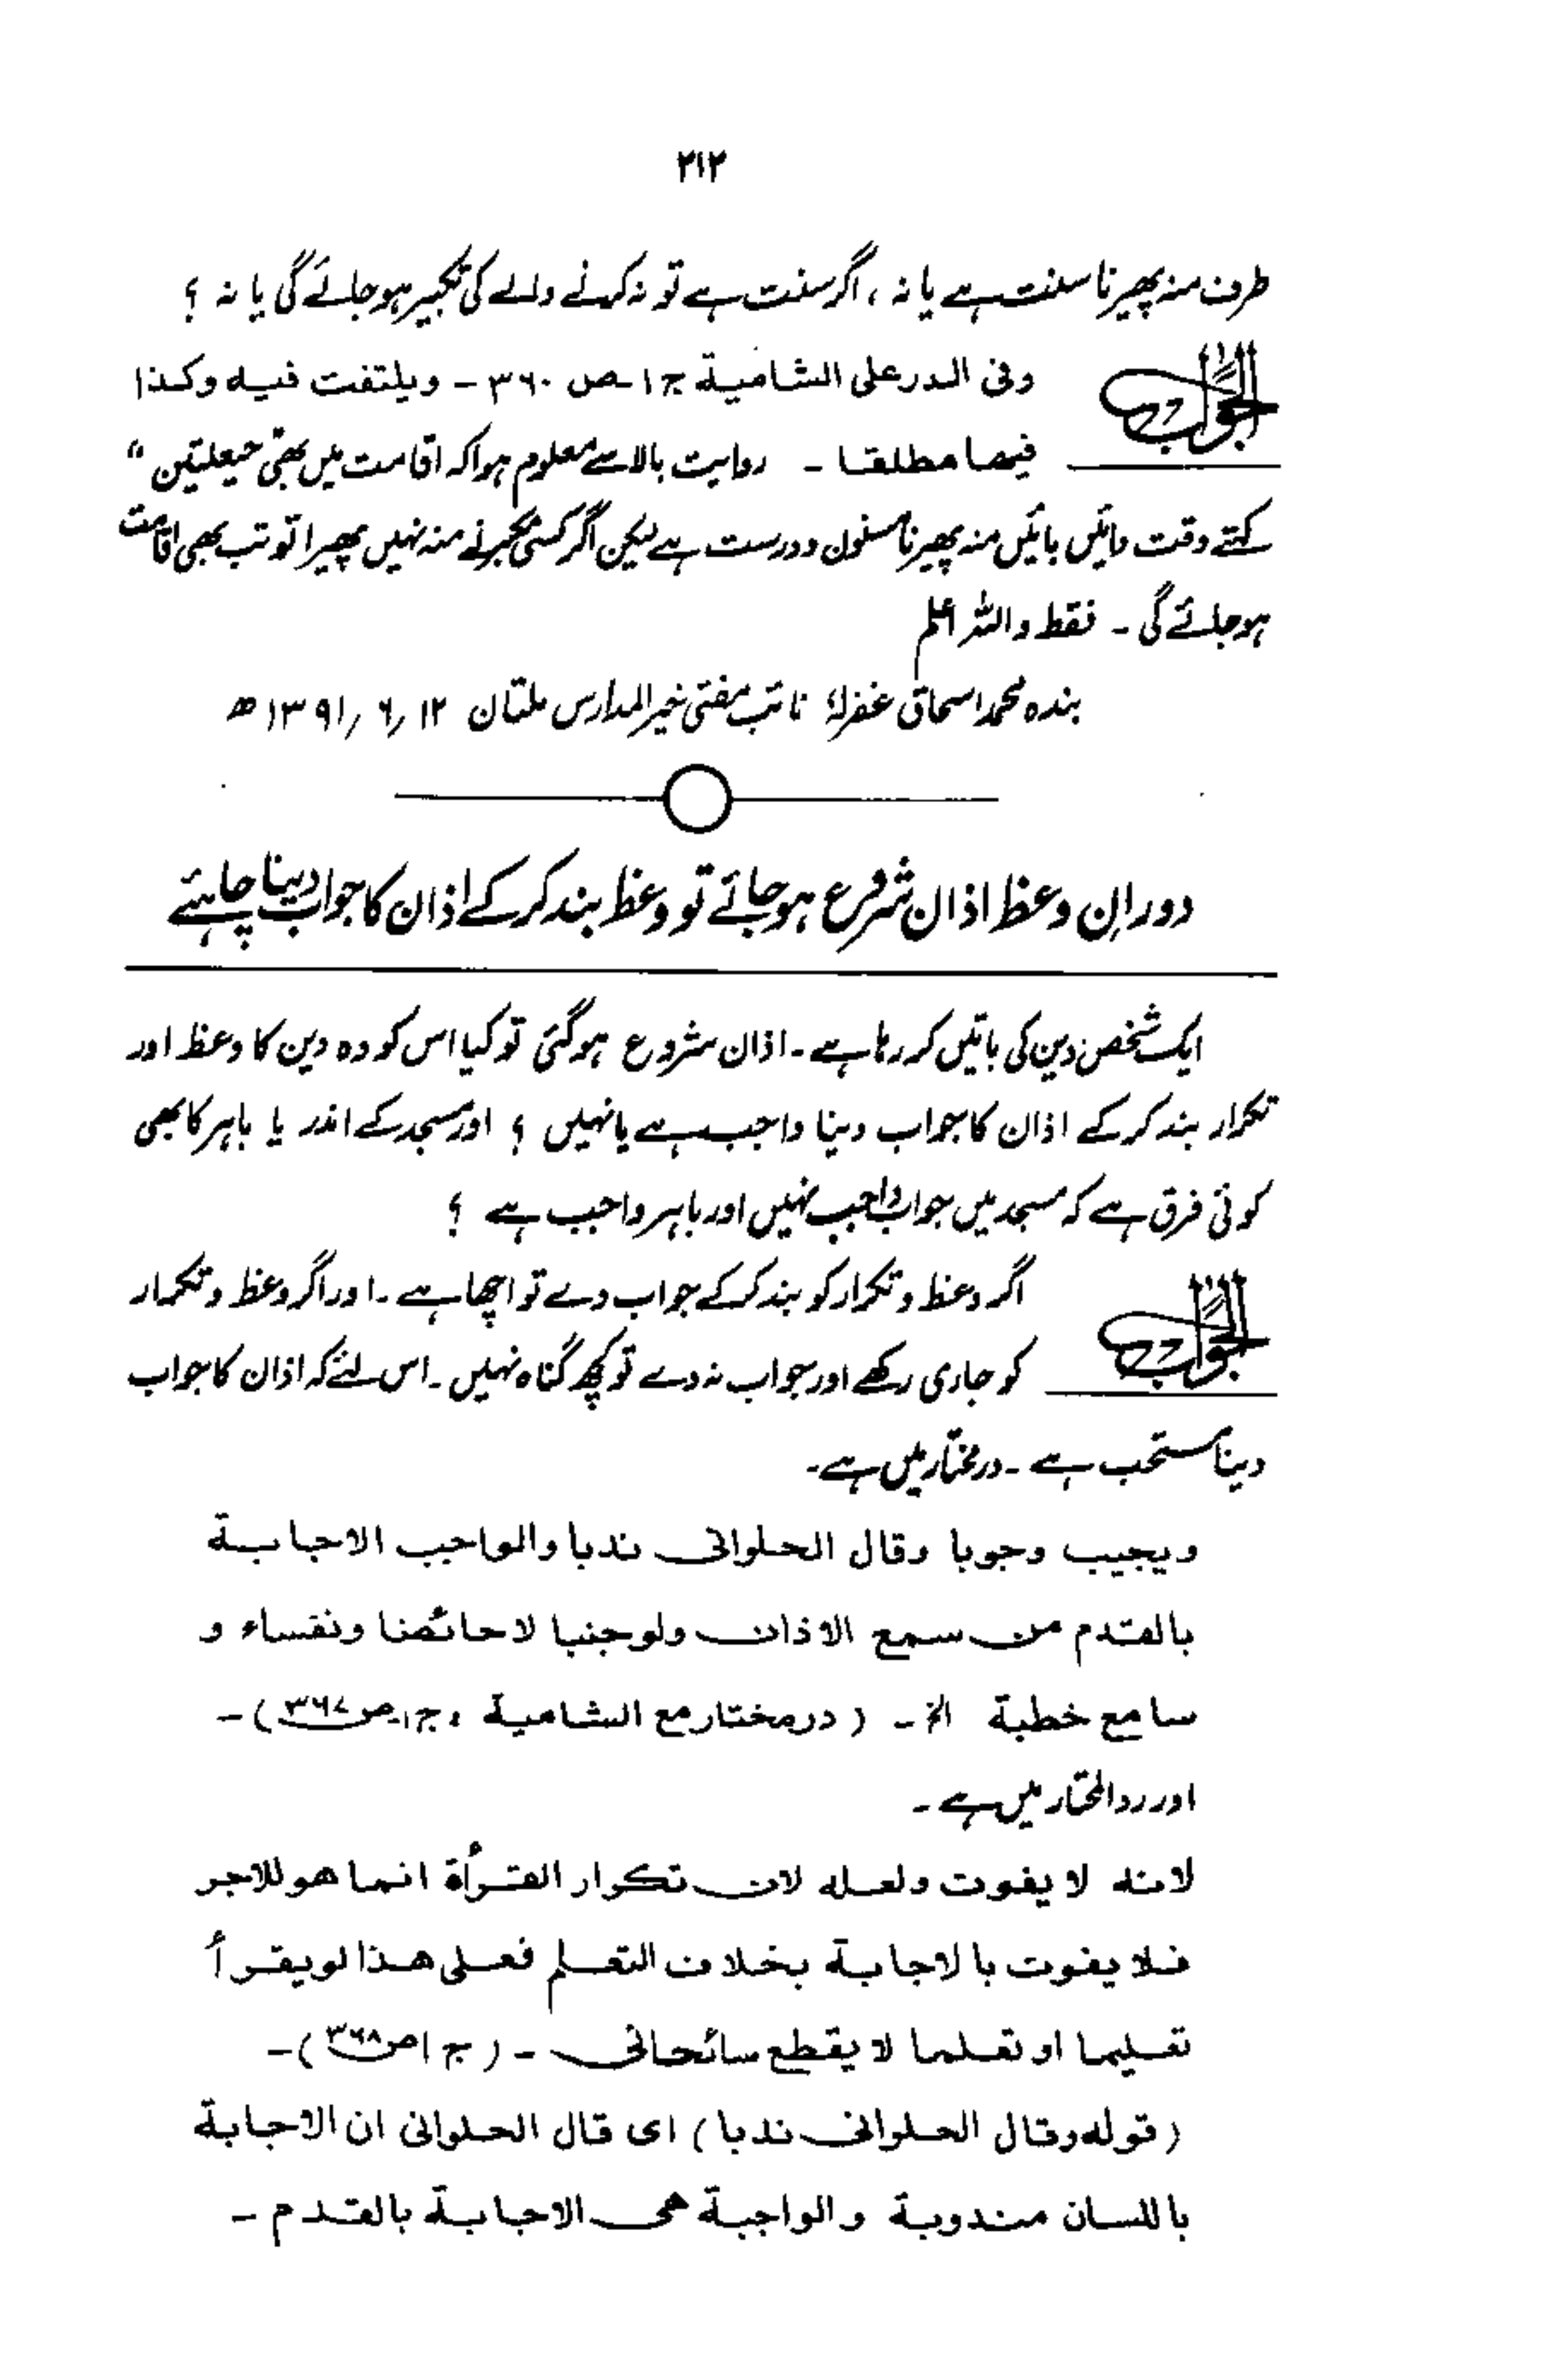 ۲۱۲
طرف منہ پھیرنا سنت ہے یا نہ ، اگر سنت ہے تو نہ کہنے والے کی تکبیر ہو جائے گی یا نہ ؟
الجواب
وفی الدر علی الشامیة ج ۱ ـ ص ۳۶۰ ـ ویلتفت فیه وکذا
فیھا مطلقا ـ روایت بالا سے معلوم ہوا کہ اقامت میں بھی حیعلتین "
کہتے وقت دائیں بائیں منہ پھیرنا مسنون و درست ہے لیکن اگر کسی مکبر نے منہ نہیں پھیرا تو تب بھی اقامت
ہو جائے گی ۔ فقط واللہ اعلم
بندہ محمد اسحاق غفرلہٗ نائب مفتی خیر المدارس ملتان ۱۲ ؍ ۶ ؍ ۱۳۹۱ ھ
دورانِ وعظ اذان شروع ہو جائے تو وعظ بند کر کے اذان کا جواب دینا چاہئے
ایک شخص دین کی باتیں کر رہا ہے ۔ اذان شروع ہو گئی تو کیا اس کو وہ دین کا وعظ اور
تکرار بند کر کے اذان کا جواب دینا واجب ہے یا نہیں ؟ اور مسجد کے اندر یا باہر کا بھی
کوئی فرق ہے کہ مسجد میں جواب واجب نہیں اور باہر واجب ہے ؟
الجواب
اگر وعظ و تکرار کو بند کر کے جواب دے تو اچھا ہے ۔ اور اگر وعظ و تکرار
کو جاری رکھے اور جواب نہ دے تو کچھ گناہ نہیں ۔ اس لئے کہ اذان کا جواب
دینا مستحب ہے ۔ درمختار میں ہے ۔
ویجیب وجوبا وقال الحلوانی ندبا والواجب الاجابة
بالقدم من سمع الاذان ولو جنبا لا حائضا ونفساء و
سامع خطبة الخ ـ ( درمختار مع الشامیة ، ج ۱ ـ ص ۳۶۷ ) ـ
اور ردالمحتار میں ہے ۔
لانه لا یفوت ولعله لان تکرار القرأة انما هو للاجر
فلا یفوت بالاجابة بخلاف التعلم فعلی هذا لو یقرأ
تعلیما او تعلما لا یقطع سائحانی ـ ( ج ۱ ص ۳۶۸ ) ـ
( قوله وقال الحلوانی ندبا ) ای قال الحلوانی ان الاجابة
باللسان مندوبة والواجبة هی الاجابة بالقدم ـ